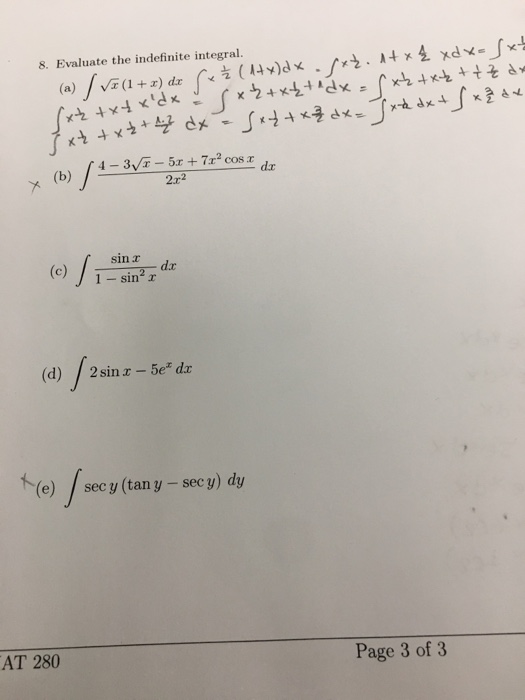 8. Evaluate the indefinite integral.
(a) ∫ √x (1 + x) dx ∫ x ½ (1+x)dx = ∫x½ · 1 + x ½ xdx = ∫x½
∫x½ + x½ x¹dx = ∫ x½ + x½+1 dx = ∫ x½ + x½ + 1 ½ dx
∫ x½ + x½ + 1·2/2 dx = ∫ x½ + x 3/2 dx = ∫ x½ dx + ∫ x 3/2 dx
x (b) ∫ (4 − 3√x − 5x + 7x² cos x)/(2x²) dx
(c) ∫ sin x/(1 − sin² x) dx
(d) ∫ 2 sin x − 5eˣ dx
x (e) ∫ sec y (tan y − sec y) dy
AT 280
Page 3 of 3